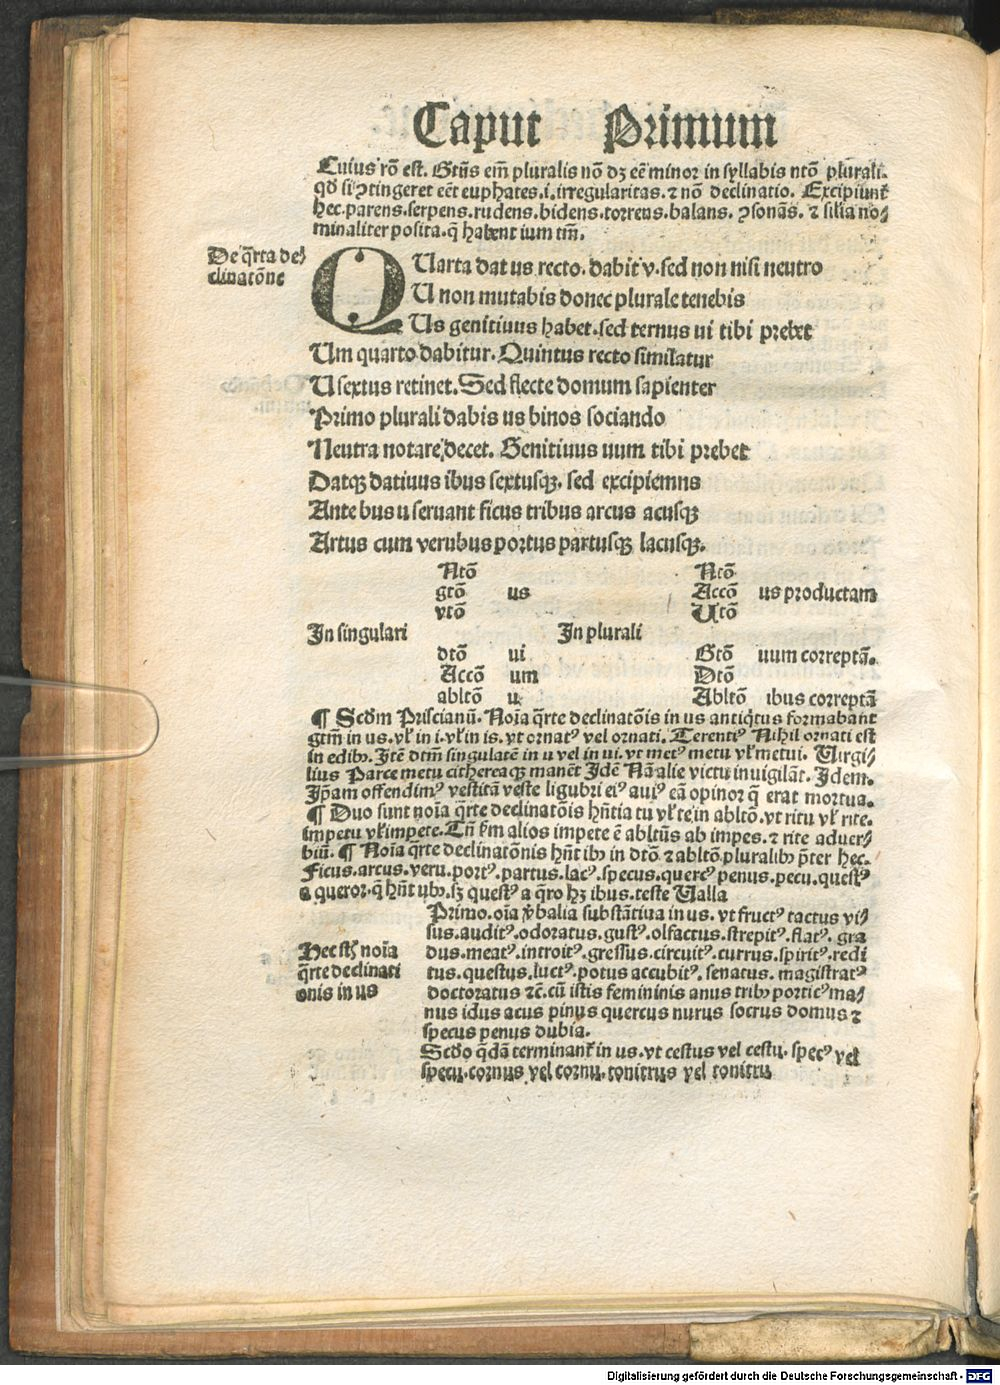 Caput Primum
Cuius rō est. Gtūs em̄ pluralis nō dꝫ eē minor in syllabis ntō plurali.
qd si ↄtingeret eēt euphates .i. irregularitas. ⁊ nō declinatio. Excipiunt̄
hec. parens. serpens. rudens. bidens. torrens. balans. ↄsonās. ⁊ silia no⸗
minaliter posita. q̄ habent ium tm̄.
De q̄rta de⸗
clinatōne
QUarta dat us recto. dabit v. sed non nisi neutro
U non mutabis donec plurale tenebis
Us genitiuus habet. sed ternus ui tibi prebet
Um quarto dabitur. Quintus recto similatur
U sextus retinet. Sed flecte domum sapienter
Primo plurali dabis us binos sociando
Neutra notare decet. Genitiuus uum tibi prebet
Datqꝫ datiuus ibus sextusqꝫ. sed excipiemus
Ante bus u seruant ficus tribus arcus acusqꝫ
Artus cum verubus portus partusqꝫ lacusqꝫ.
Ntō Ntō
gtō us Accō us productam
vtō Utō
In singulari In plurali
dtō ui Gtō uum correptā.
Accō um Dtō
abltō u Abltō ibus correptā
¶ Scdm Priscianū. Noīa q̄rte declinatōis in us antiq̄tus formabant
gtm̄ in us. vl̄ in i. vl̄ in is. vt ornatꝰ vel ornati. Terentiꝰ Nihil ornati est
in edibꝫ. Itē dtm̄ singularē in u vel in ui. vt metꝰ metu vl̄ metui. Uirgi⸗
lius Parce metu cithereaqꝫ manēt Idē Nā alie victu inuigilāt. Idem.
Ip̄am offendimꝰ vestitā veste ligubri eiꝰ auiꝰ eā opinor q̄ erat mortua.
¶ Duo sunt noīa q̄rte declinatōis hn̄tia tu vl̄ te in abltō. vt ritu vl̄ rite.
impetu vl̄ impete. Tn̄ km̄ alios impete ē abltūs ab impes. ⁊ rite aduer⸗
biū. ¶ Noīa q̄rte declinatōnis hn̄t ibꝫ in dtō ⁊ abltō pluralibꝫ p̄ter hec.
Ficus. arcus. veru. portꝰ. partus. lacꝰ. specus. quercꝰ penus. pecu. questꝰ
a queror. q̄ hn̄t ubꝫ. sꝫ questꝰ a q̄ro hꝫ ibus. teste Ualla
Primo. oīa v̄balia substātiua in us. vt fructꝰ tactus vi⸗
sus. auditꝰ. odoratus. gustꝰ. olfactus. strepitꝰ. flatꝰ. gra
Hec sūt noīa
q̄rte declinati
onis in us
dus. meatꝰ. introitꝰ. gressus. circuitꝰ. currus. spiritꝰ. redi
tus. questus. luctꝰ. potus accubitꝰ. senatus. magistratꝰ
doctoratus ⁊c. cū istis femininis anus tribꝫ porticꝰ ma⸗
nus idus acus pinus quercus nurus socrus domus ⁊
specus penus dubia.
Scdo q̄dā terminant̄ in us. vt cestus vel cestu. specꝰ vel
specu. cornus vel cornu. tonitrus vel tonitru
Digitalisierung gefördert durch die Deutsche Forschungsgemeinschaft - DFG